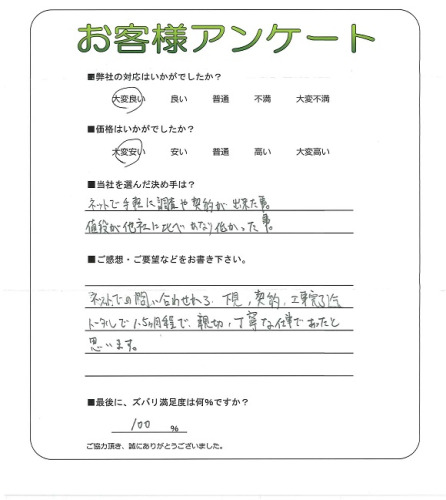 お客様アンケート
■弊社の対応はいかがでしたか？
大変良い 良い 普通 不満 大変不満
■価格はいかがでしたか？
大変安い 安い 普通 高い 大変高い
■当社を選んだ決め手は？
ネットで手軽に調査や契約が出来た事。
値段が他社に比べかなり低かった事。
■ご感想・ご要望などをお書き下さい。
ネットでの問い合わせから、下見、契約、工事完了迄
トータルで1.5ヶ月程で、親切、丁寧な仕事であったと
思います。
■最後に、ズバリ満足度は何%ですか？
100 %
ご協力頂き、誠にありがとうございました。